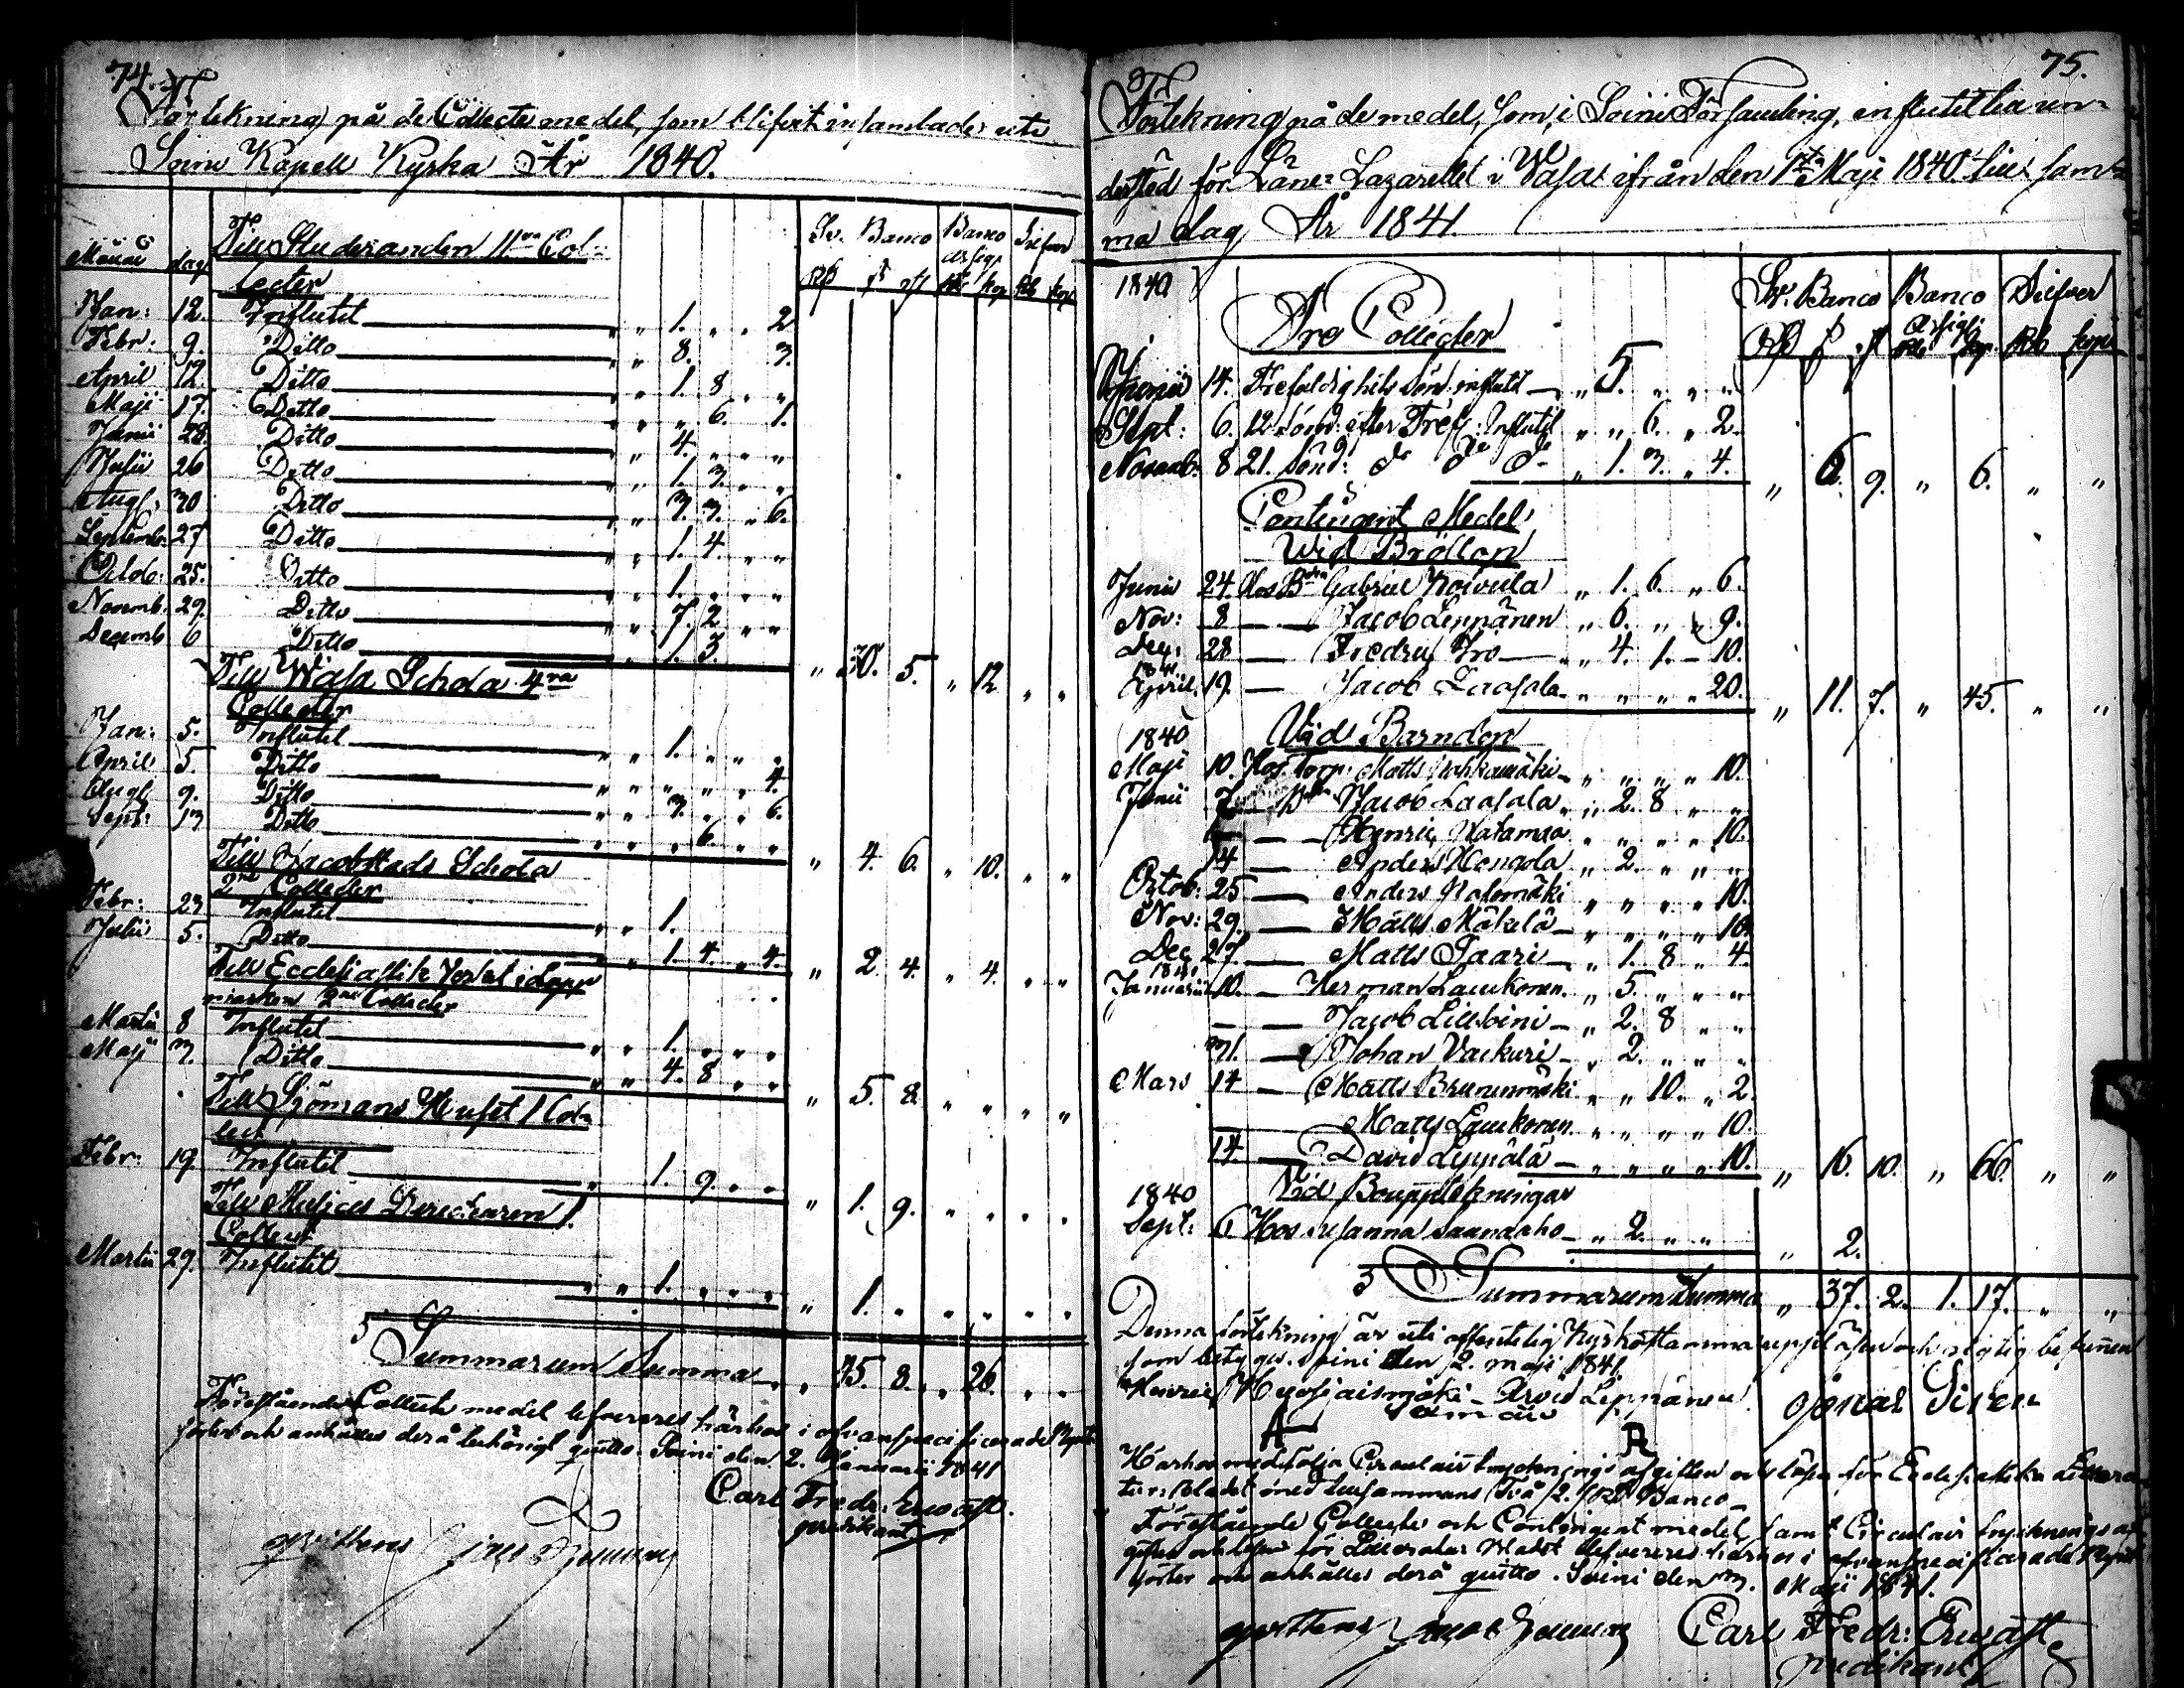 74.
Förtekning på de Collecte medel, som blifvit insamlade uti
Soini Kapell Kyrka År 1840.
Månad dag Till Studeranden 11va Col= Sv. Banco Banco Silfver
lecter
Jan: 12. Influtit " " 1. " " 2
Febr: 9. Ditto " " 8. 3.
April 12. Ditto " " 1. 8 " "
Maji 17. Ditto " " " 6. 1.
Junii 28. Ditto " " 4. " " "
Julii 26 Ditto " " 1. 3. " "
Aug: 30 Ditto " " 3. 3. " 6.
Septemb: 27 Ditto " " 1. 4. " "
Octob: 25. Ditto " " 1. " " "
Novemb. 29. Ditto " " 7. 2 " "
Decemb 6 Ditto " 1. 3. " 30. 5. " 12 " "
Till Wasa Schola 4ra
Collecter
Jan: 5. Influtit " " 1. " " "
April 5. Ditto " " " " " 4.
Aug: 9. Ditto " " 3. " " 6.
Sept: 13 Ditto " " " 6. " " " 4. 6. " 10. " "
Till Jacobstads Schola
2ne Collecter
Febr: 23 Influtit " " 1.
Julii 5. Ditto " " 1. 4. " 4. " 2. 4. " 4. " "
Till Ecclesiastik Verket i Lapp
marken 2ne Collecter
Martii 8 Influtit " " 1. " " "
Maji 3. Ditto " " 4. 8 " " " 5. 8. " " " "
Till Sjömans Huset 1 Col=
lect
Febr: 19. Influtit " 1. 9. " " " 1. 9. " " " "
Till Musices Directeuren 1.
Collect
Martii 29. Influtit " " 1. " " " " 1. " " " " "
Summarum Summa " 45. 8. " 26. " "
Förestående Collecte medel lefvereres härhos i ofvanspecificerade Mynt
sorter och anhålles derå behörigt quitto. Soini den 2. Januarii 1841
Carl Fredr: Ervast.
predikant
qvitteras
75.
Förtekning på de medel, som, i Soini Församling, influtit till un=
derstöd för Läne-Lazarettet i Wasa ifrån den 1sta Maji 1840 till sam=
ma dag År 1841.
1840 Tre Collecter Sv. Banco Banco Silfver
Junii 14. Trefaldighets sönd: influtit " 5. " " "
Sept: 6. 12 sönd: efter Tref: Influtit " " 6. " 2.
Novemb: 8 21. sönd: do do do " 1. 3. " 4. " 6. 9. " 6. " "
Contingent Medel
Wid Bröllop
Junii 24. Hos Bdn Gabriel Koivula " 1. 6. " 6.
Nov: 8 Jacob Leppänen " 6. " " 9.
Dec: 28 Fredric Iro " 4. 1. 10.
1841 April 19. Jacob Laasala " " " " 20. " 11. 7. " 45. " "
1840 Vid Barndop
Maji 10. Hos Torp: Matts " " " " 10.
Junii 7 Bdn Jacob Laasala " 2. 8 " "
Henric Hatamaa " " " " 10.
14 Anders Hongola " 2. " " "
Octob: 25 Anders " " " " 10.
Nov: 29. Matts Mäkelä " " " " 10
Dec 27. Matts Saari " 1. 8 " 4.
1841. Januarii 10. Herman Laukonen. " 5. " " "
Jacob Lillsoini " 2. 8 " "
31. Johan Vackuri " 2. " " "
Mars 14 Matts " " 10. " 2.
Matts Laukonen " " " " 10.
14. David Leppälä " " " " 10. " 16. 10. " 66. " "
1840 Vid Bouppteckningar
Sept: 6 Hos Susanna Saarnaaho " 2. " " " 2.
Summarum Summa " 37. 2. 1. 17. " "
Denna förtekning är uti offentelig Kyrkostämma uppläsen och rigtig befunnen
som betygas. Soini den 2. maji 1841.
Henric Arvid Leppänen
A R
Härhos medfölja Circulair tryckningsafgiften och lösen för Ecclesiastika Littera
tur: Bladet med tillsammans Två /2./ Rd Banco
Förestående Collecte och Contingent medel, samt Circulair trycknings af
giften och lösen för Litteratur Bladet lefvereres härhos i ofvanspecificerade Mynt
sorter och anhålles derå quitto. Soini den 3. Maji 1841.
qvitteras Carl Fredr: Ervast
predikant